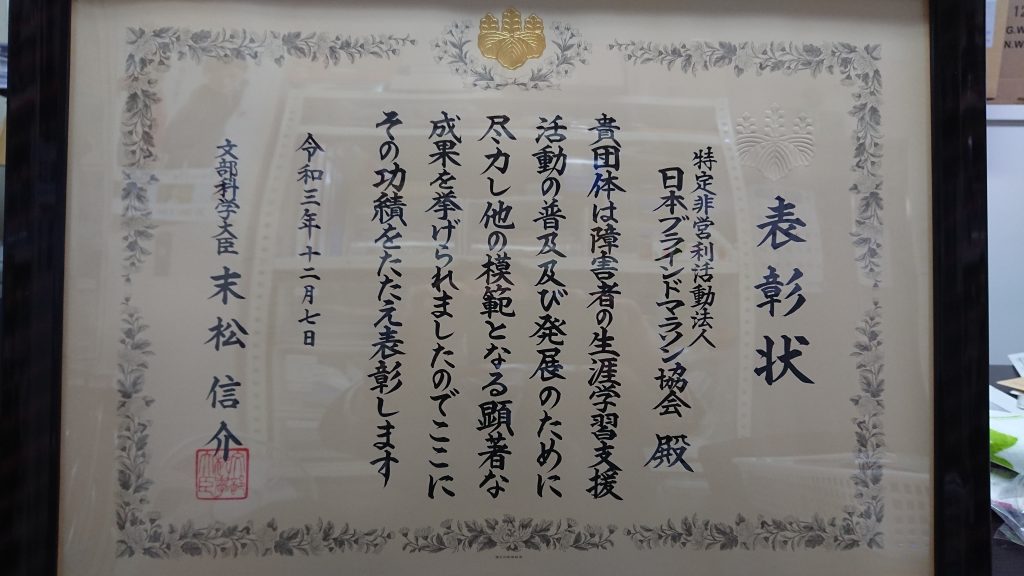 表彰状
特定非営利活動法人
日本ブラインドマラソン協会 殿
貴団体は障害者の生涯学習支援
活動の普及及び発展のために
尽力し他の模範となる顕著な
成果を挙げられましたのでここに
その功績をたたえ表彰します
令和三年十二月七日
文部科学大臣 末松信介